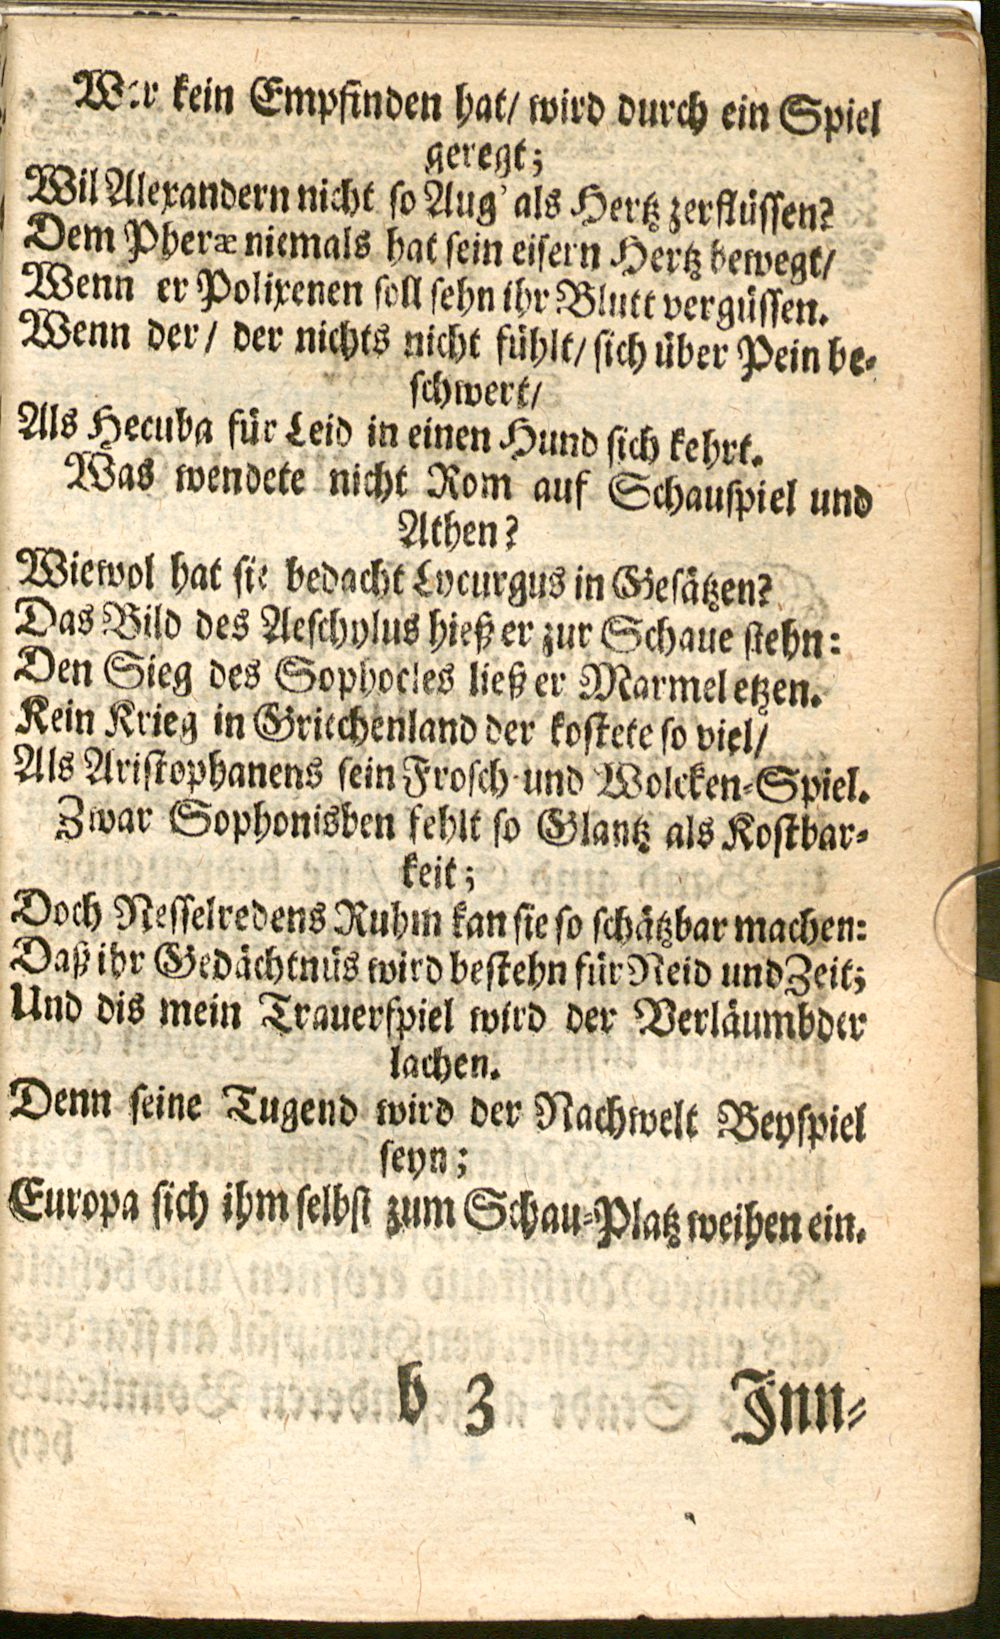 Wer kein Empfinden hat/ wird durch ein Spiel
geregt;
Wil Alexandern nicht so Aug' als Hertz zerflüssen?
Dem Pheræ niemals hat sein eisern Hertz bewegt/
Wenn er Polixenen soll sehn ihr Blutt vergüssen.
Wenn der/ der nichts nicht fühlt/ sich über Pein be-
schwert/
Als Hecuba für Leid in einen Hund sich kehrt.
Was wendete nicht Rom auf Schauspiel und
Athen?
Wiewol hat sie bedacht Lycurgus in Gesätzen?
Das Bild des Aeschylus hieß er zur Schaue stehn:
Den Sieg des Sophocles ließ er Marmel etzen.
Kein Krieg in Griechenland der kostete so viel/
Als Aristophanens sein Frosch-und Wolcken-Spiel.
Zwar Sophonisben fehlt so Glantz als Kostbar-
keit;
Doch Nesselredens Ruhm kan sie so schätzbar machen:
Daß ihr Gedächtnüs wird bestehn für Neid und Zeit;
Und dis mein Trauerspiel wird der Verläumbder
lachen.
Denn seine Tugend wird der Nachwelt Beyspiel
seyn;
Europa sich ihm selbst zum Schau-Platz weihen ein.
b 3 Jnn-